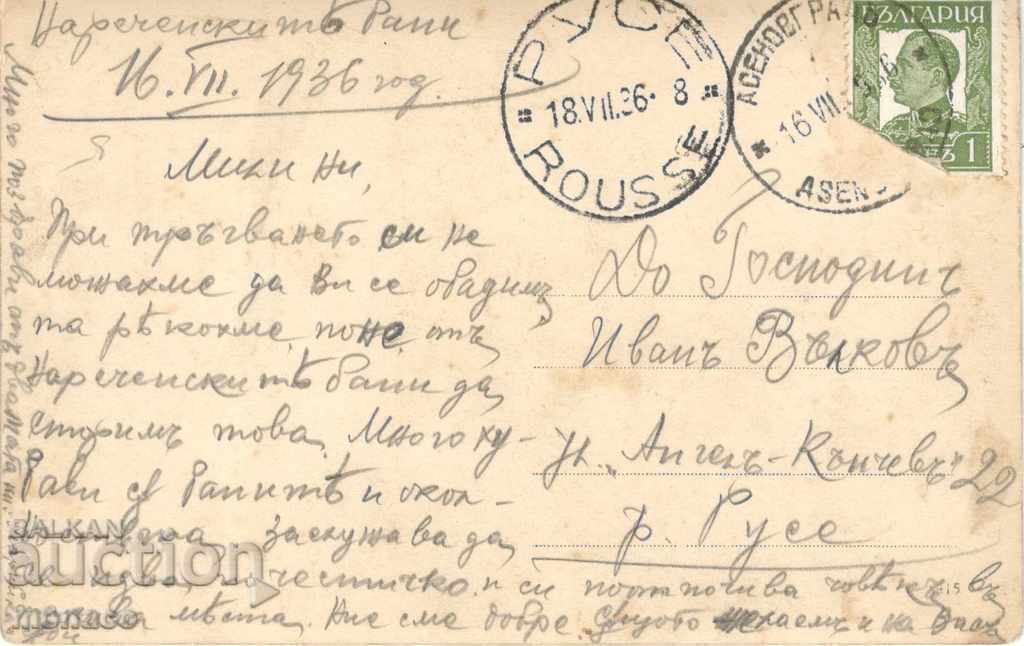 Нареченскитѣ бани
16.VII.1936 год.
Мили ни,
При тръгването си не
можахме да Ви се обадимъ
та рѣкохме поне отъ
Нареченскитѣ бани да
сторимъ това. Много ху-
бави сѫ банитѣ и окол-
заслужава да
се идва почестичко и си поотпочива човѣкъ въ
такива мѣста. Ние сме добре. Същото желаемъ и на Васъ
Много поздрави отъ двамата ни
РУСЕ
18.VII.36. 8
ROUSSE
АСЕНОВГРАДЪ
16 VII 36
ASEN
БЪЛГАРИЯ
ЛЕВЪ 1
До Господинъ
Иванъ Вълковъ
ул. „Ангелъ-Кънчевъ" 22
гр. Русе
15
BALKAN
auction
monaco